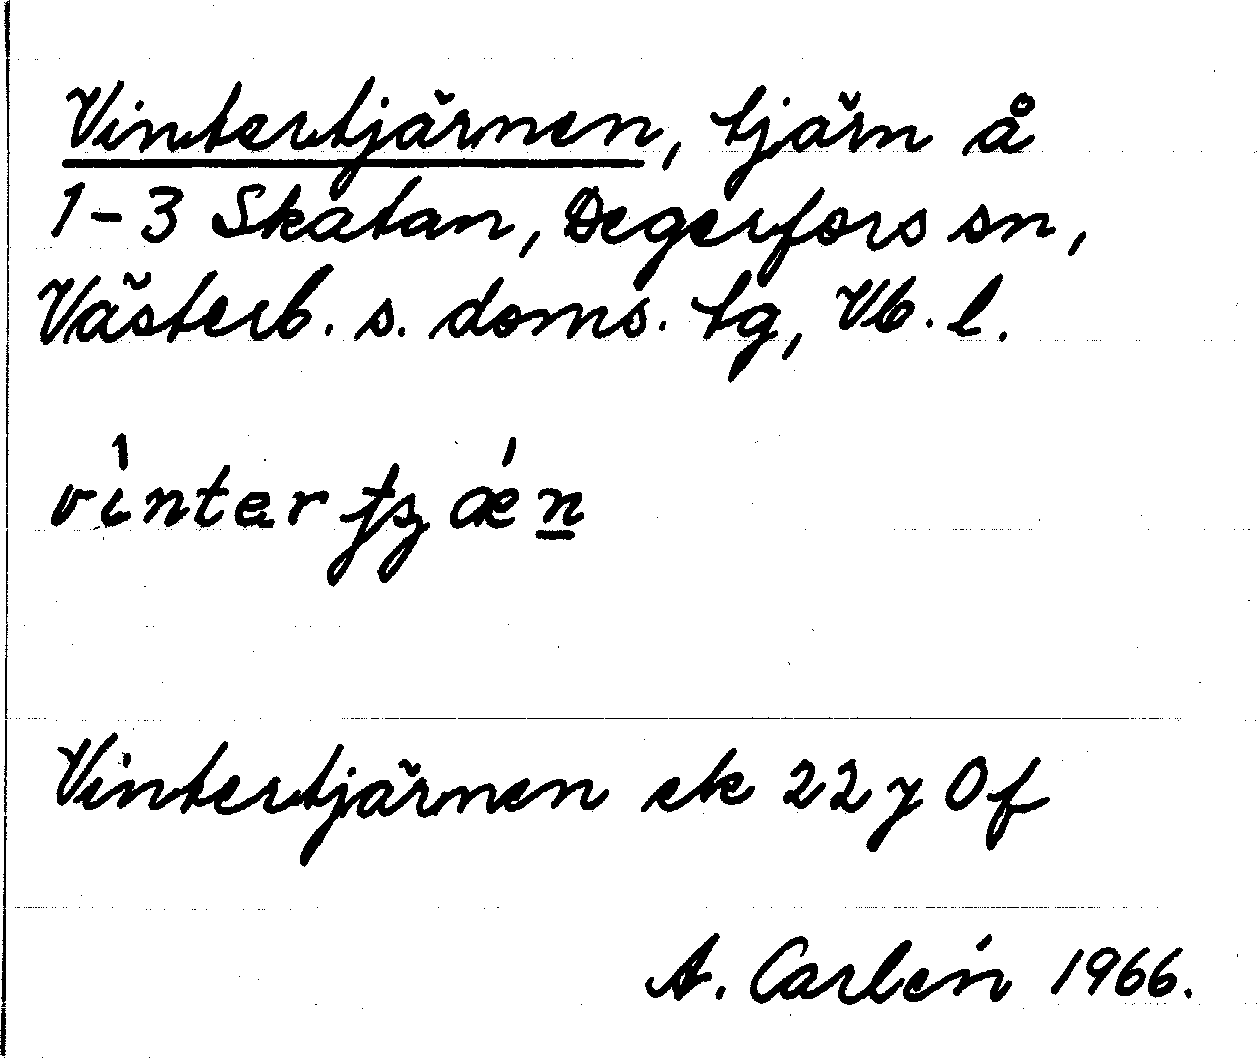 Vintertjärnen, tjärn å
1-3 Skatan, Degerfors sn,
Västerb. s. doms. tg, Vb. l.
Vintertjärnen ek 22 y 0 f
A. Carlén 1966.